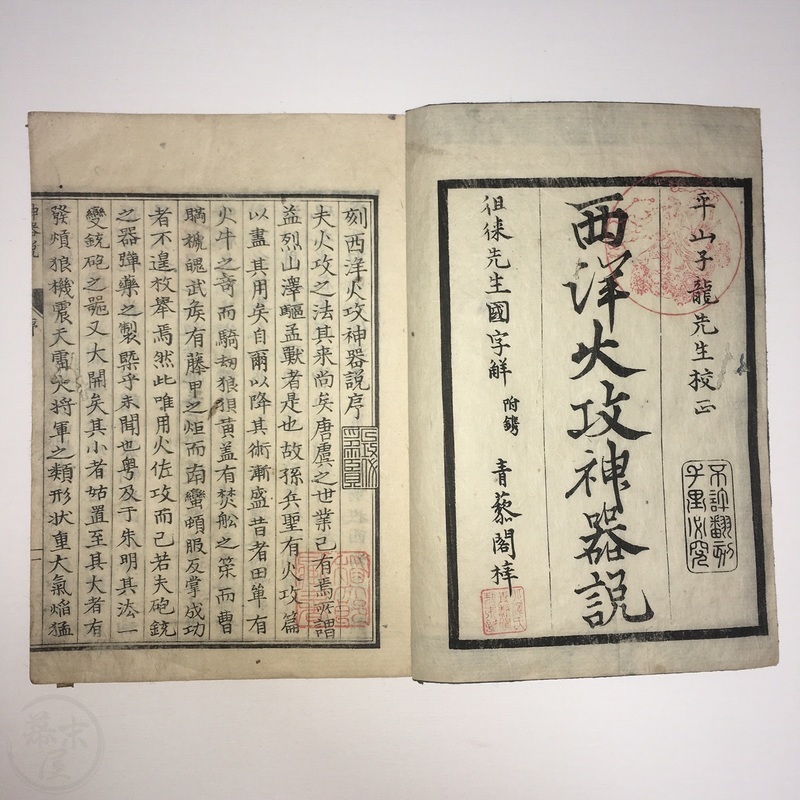 平山子龍先生挍正
西洋火攻神器說
徂徠先生國字解 附鐫 青藜閣梓
不許翻刻
千里必究
刻西洋火攻神器說序
夫火攻之法其來尚矣唐虞之世業已有焉所謂
益烈山澤驅孟獸者是也故孫兵聖有火攻篇
以盡其用矣自爾以降其術漸盛昔者田單有
火牛之奇而騎劫狼狽黃盖有焚舩之策而曹
瞞褫魄武矦有藤甲之炬而南蠻頓服反掌成功
者不遑枚舉焉然此唯用火佐攻而已若夫砲銃
之器彈藥之製槩乎未聞也粤及于朱明其法一
變銃砲之噐又大開矣其小者姑置至其大者有
發熕狼機震天雷大將軍之類形狀重大氣焰猛
神器說 序 一
幕末屋